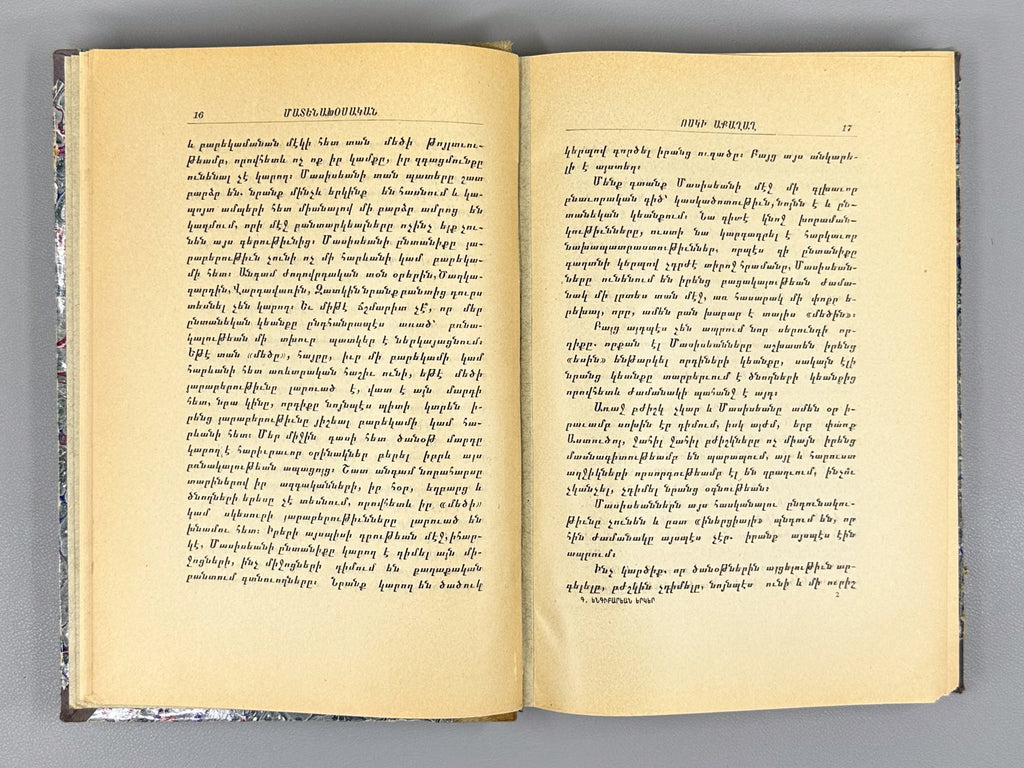 16 ՄԱՏԵՆԱԽՕՍԱԿԱՆ
և բարեկամանան մէկի հետ տան մեծի Թոյլտուու-
թեամբ, որովհետև ոչ ոք իր կամքը, իր զգացմունքը
ունենալ չէ կարող։ Մասիսեանի տան պատերը շատ
բարձր են. նրանք մինչև երկինք են հասնում և կա-
պոյտ ամպերի հետ միանալով մի բարձր ամրոց են
կազմում, որի մէջ բանտարկեալները ոչինչ ելք չու-
նեն այս գերութիւնից։ Մասիսեանի ընտանիքը յա-
րաբերութիւն չունի ոչ մի հարևանի կամ բարեկա-
մի հետ։ Անդամ ժողովրդական տօն օրերին, Ծաղկա-
զարդին, Վարդավառին, Զատկին նրանք բանտից դուրս
տեսնել չեն կարող։ Եւ միթէ ճշմարիտ չէ՞, որ մեր
ընտանեկան կեանքը ընդհանրապէս առած՝ բռնա-
կալութեան մի տխուր պատկեր է ներկայացնում։
Եթէ տան «մեծը», հայրը, իւր մի բարեկամի կամ
հարևանի հետ առևտրական հաշիւ ունի, եթէ մեծի
յարաբերութիւնը լարուած է, վատ է այն մարդի
հետ, նրա կինը, որդիքը նոյնպէս պիտի կտրեն ի-
րենց յարաբերութիւնը յիշեալ բարեկամի կամ հա-
րևանի հետ։ Մեր միջին դասի հետ ծանօթ մարդը
կարող է հարիւրաւոր օրինակներ բերել իբրև այս
բռնակալութեան ապացոյց։ Շատ անդամ նորահարսը
տարիներով իր ազգականների, իր հօր, եղբարց և
ծնողների երեսը չէ տեսնում, որովհետև իր «մեծի»
կամ սկեսուրի յարաբերութիւնները լարուած են
խնամու հետ։ Իրերի այսպիսի դրութեան մէջ, իհար-
կէ, Մասիսեանի ընտանիքը կարող է դիմել այն մի-
ջոցների, ինչ միջոցների դիմում են քաղաքական
բանտում գտնուողները։ Նրանք կարող են ծածուկ
ՈՍԿԻ ԱՔԱՂԱՂ 17
կերպով գործել իրանց ուզածը։ Բայց այս անկարե-
լի է այստեղ։
Մենք գտանք Մասիսեանի մէջ մի գլխաւոր
բնաւորական գիծ՝ կասկածոտութիւն, նոյնն է և ըն-
տանեկան կեանքում։ Նա գիտէ կնոջ խորաման-
կութիւնները, ուստի նա կարգադրել է հարկաւոր
նախապատրաստութիւններ, որպէս զի ընտանիքը
գաղտնի կերպով չդրժէ տիրոջ հրամանը, Մասիսեան-
ները ունենում են իրենց բացակայութեան ժամա-
նակ մի լրտես տան մէջ, առ հասարակ մի փոքր ե-
րեխայ, որը, ամեն բան խաբար է տալիս «մեծին»։
Բայց այդպէս չեն ապրում նոր սերունդի որ-
դիքը. որքան էլ Մասիսեանները աշխատեն իրենց
«եսին» ենթարկել որդիների կեանքը, սակայն էլի
նրանց կեանքը տարբերւում է ծնողների կեանքից
որովհետև ժամանակի պահանջ է այդ։
Առաջ բժիշկ չկար և Մասիսեանը ամեն օր ի-
րաւամբ սոխին էր դիմում, իսկ այժմ, երբ փառք
Աստուծոյ, ջահիլ ջահիլ բժիշկները ոչ միայն իրենց
մասնագիտութեամբ են պարապում, այլ և հարուստ
աղջիկների որսորդութեամբ էլ են զբաղւում, ինչու՞
չկանչել, չդիմել նրանց օգնութեան։
Մասիսեաններն այս հասկանալու ընդունակու-
թիւնը չունեն և ըստ «իներցիայի» պնդում են, որ
հին ժամանակը այսպէս չէր. իրանք այսպէս էին
ապրում։
Ինչ կարծիք, որ ծանօթներին այցելութիւն ար-
գելելը, բժշկին չդիմելը, նոյնպէս ունի և մի ուրիշ
Գ. ԵՆԳԻԲԱՐԵԱՆ ԵՐԿԵՐ 2